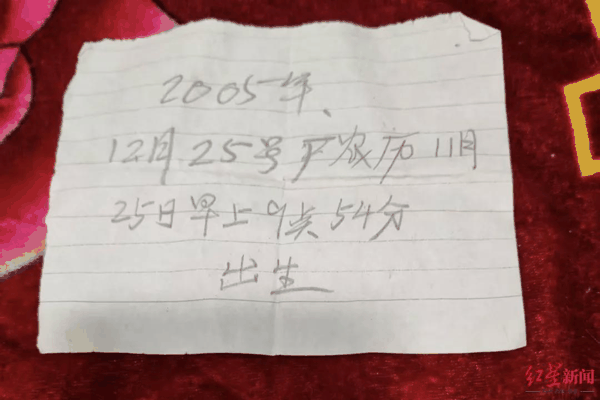 2005年、
12月25号产农历11月
25日早上9点54分
出生
红星新闻